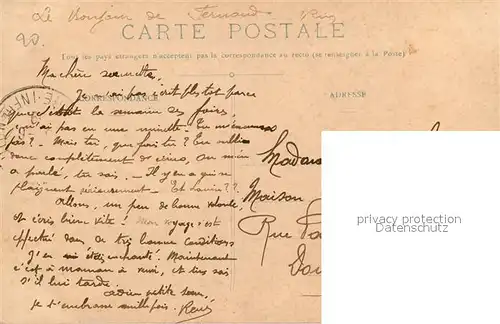 Le bonjour de Fernand
20.
CARTE POSTALE
Tous les pays étrangers n'acceptent pas la correspondance au recto (se renseigner à la Poste)
CORRESPONDANCE
ADRESSE
Ma chère
Je n'ai pas écrit plus tôt parce
que c'était la semaine des foires,
n'ai pas eu une minute. Tu m'
pas? - Mais toi, que fais tu? Tu
donc complètement de
a parlé, tu sais. - Il y en a qui se
plaignent sérieusement - Et
Allons, un peu de bonne volonté
et écris bien vite! Mon voyage s'est
effectué dans de très bonne conditions
J'en enchanté. Maintenant
c'est à maman à venir, et tu sais
s'il lui tarde.
adieu petite sœur,
je t'embrasse mille fois. René
Madam
Maison
Rue
privacy protection
www.delcampe.net